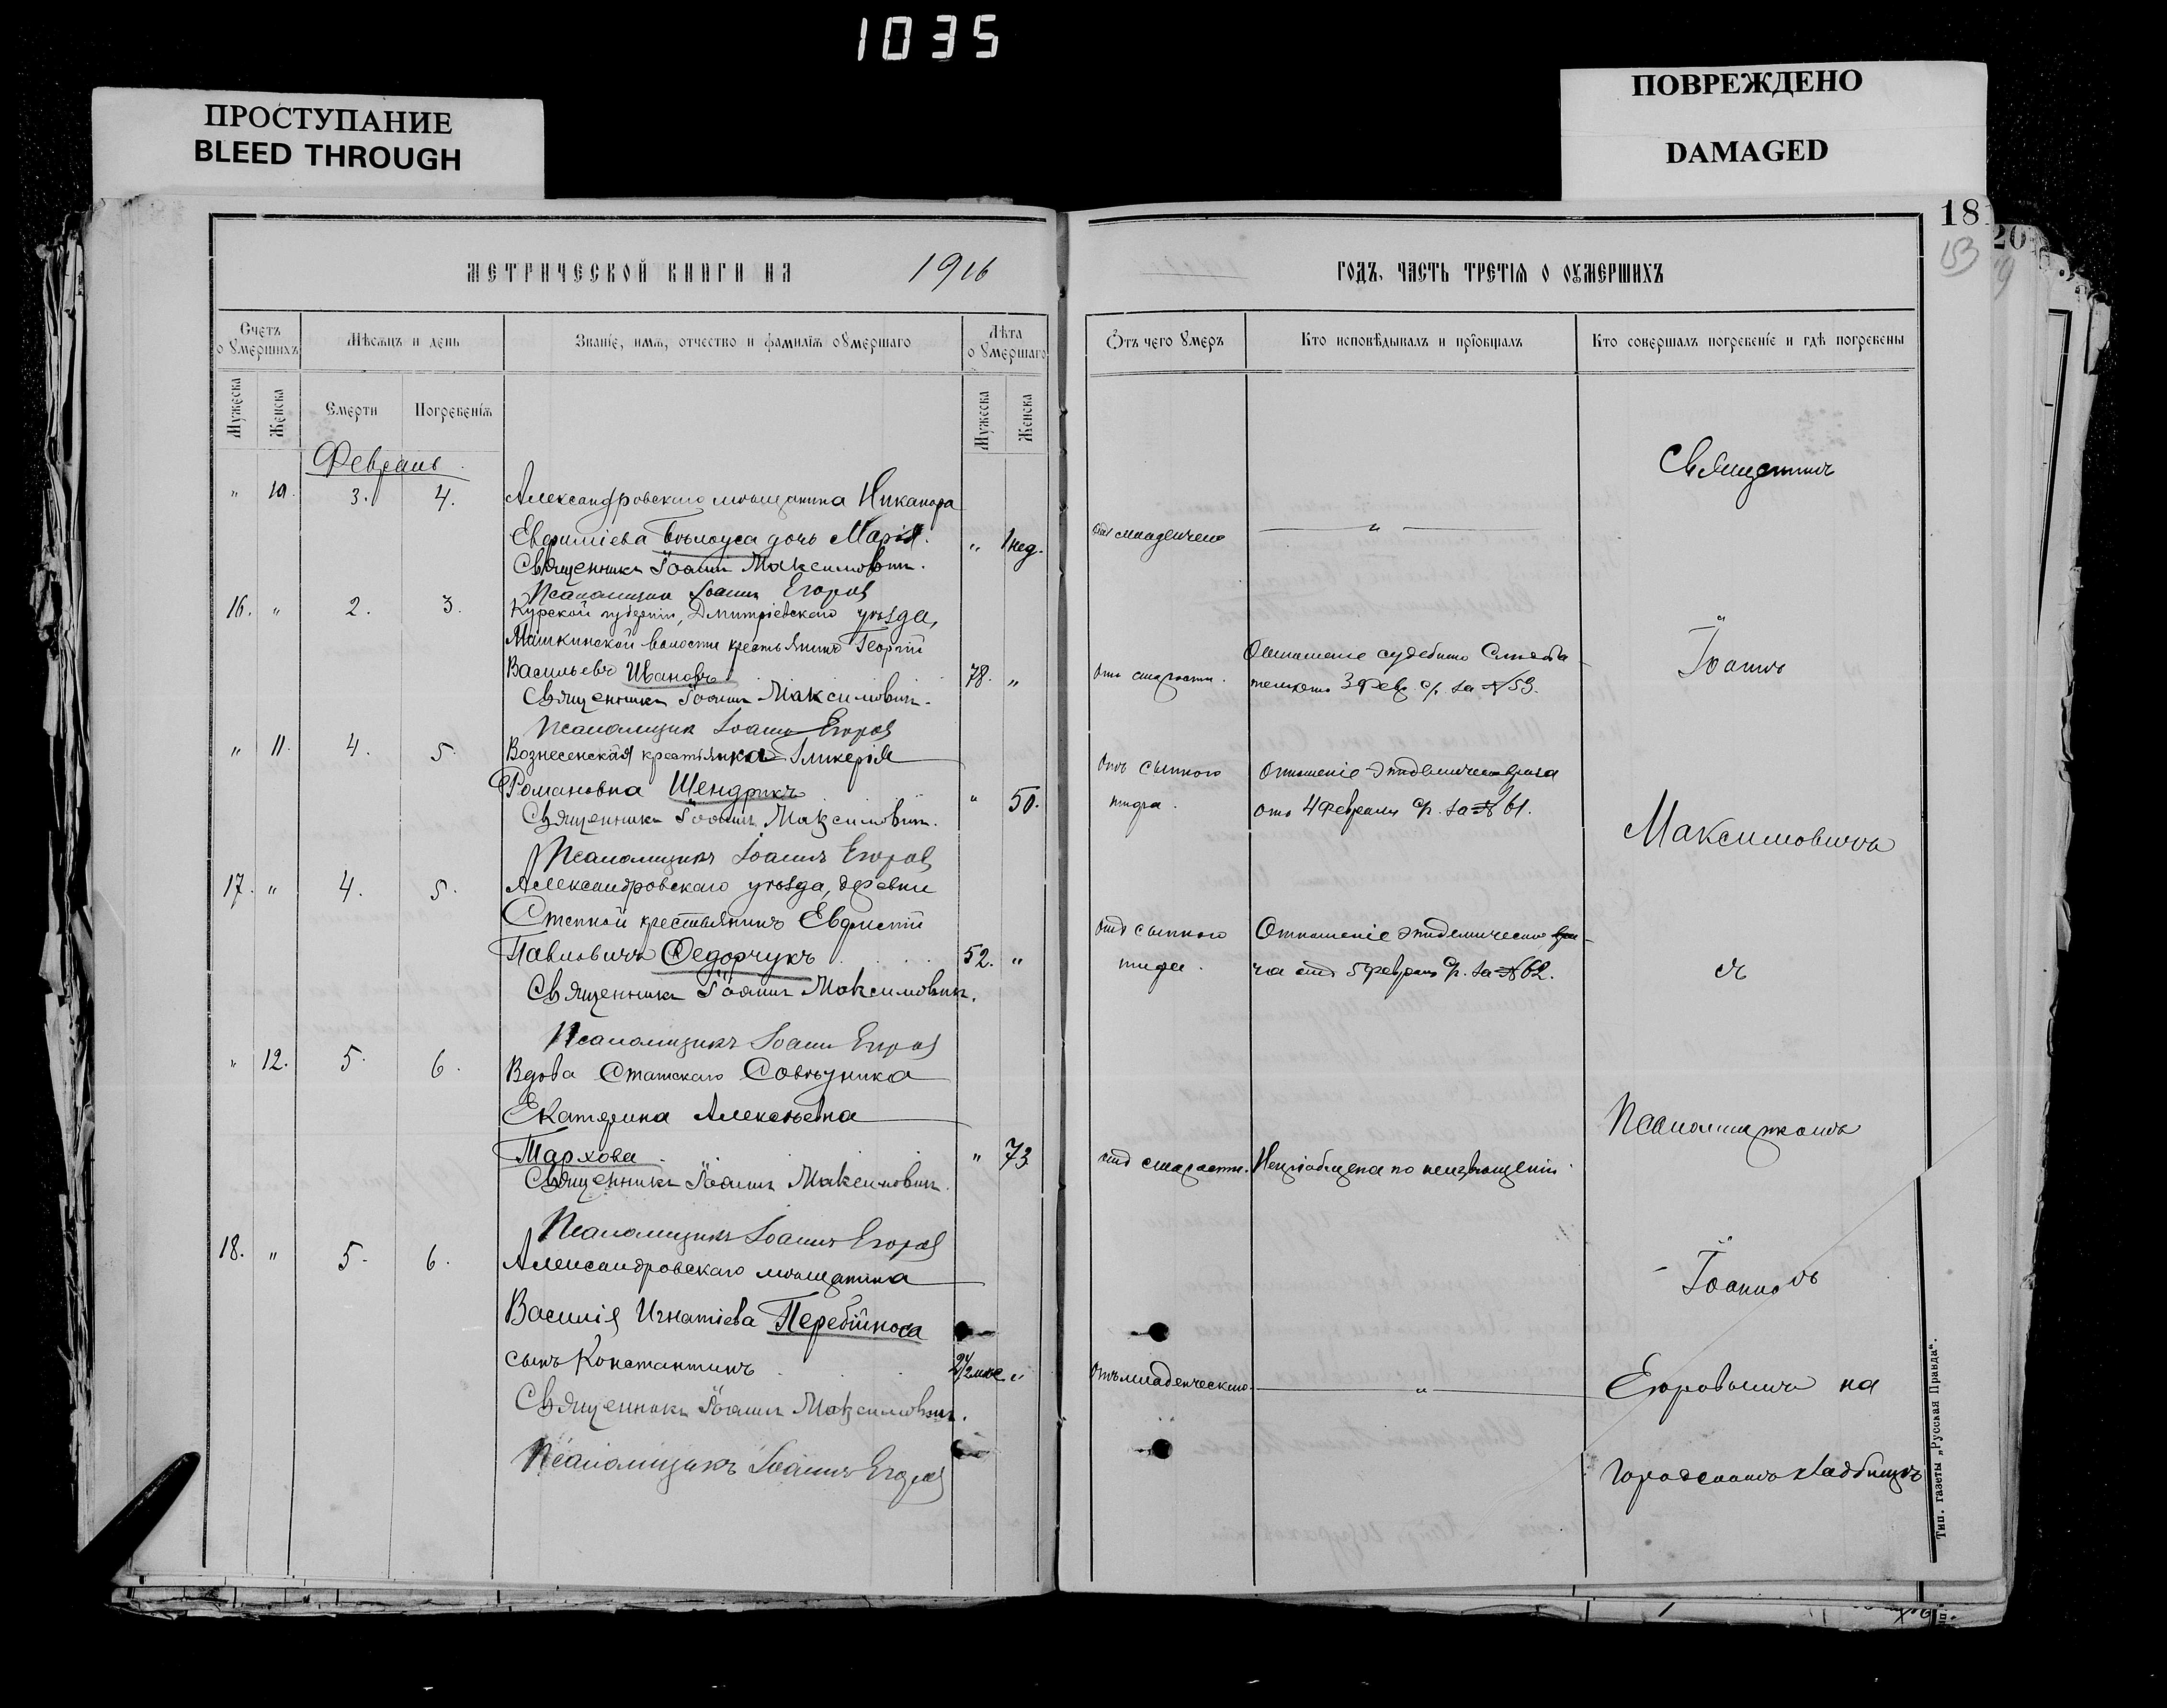 1035
ПРОСТУПАНИЕ
BLEED THROUGH
ПОВРЕЖДЕНО
DAMAGED
18
153
20
МЕТРИЧЕСКОЙ КНИГИ НА 1916
ГОДЪ, ЧАСТЬ ТРЕТІЯ О ОУМЕРШИХЪ
Счетъ оумершихъ
Мѣсяцъ и день
Званіе, имя, отчество и фамилія оумершаго
Лѣта оумершаго
Отъ чего оумеръ
Кто исповѣдывалъ и пріобщалъ
Кто совершалъ погребеніе и гдѣ погребены
Мужеска
Женска
Смерти
Погребенія
Мужеска
Женска
Февраль
" 10. 3. 4. Александровскаго мѣщанина Никанора
Евфиміева Бѣлоуса дочь Марія. " 1 нед.
Священникъ Іоаннъ Максимовичъ.
Псаломщикъ Іоаннъ Егоровъ
16. " 2. 3. Курской губерніи, Дмитріевскаго уѣзда,
Машкинской волости крестьянинъ Георгій
Васильевъ Ивановъ 78. " отъ старости. Отношеніе судебнаго Слѣдова-
теля отъ 3 Фев. с/г. за № 53.
Священникъ Іоаннъ Максимовичъ.
Псаломщикъ Іоаннъ Егоровъ
" 11. 4. 5. Вознесенская крестьянка Гликерія
Романовна Шендрикъ " 50. Отъ сыпного тифа.
Отношеніе эпидемическ. врача
отъ 4 февраля с/г. за № 61.
Священникъ Іоаннъ Максимовичъ.
Псаломщикъ Іоаннъ Егоровъ
17. " 4. 5. Александровскаго уѣзда, деревни
Степной крестьянинъ Евфистій
Павловичъ Федорчукъ 52. " отъ сыпного тифа.
Отношеніе эпидемическаго вра-
ча отъ 5 февраля с/г. за № 62.
Священникъ Іоаннъ Максимовичъ.
Псаломщикъ Іоаннъ Егоровъ
" 12. 5. 6. Вдова Статскаго Совѣтника
Екатерина Алексѣевна
Тархова " 73 отъ старости. Непріобщена по неизвѣщенію.
Священникъ Іоаннъ Максимовичъ.
Псаломщикъ Іоаннъ Егоровъ
18. " 5. 6. Александровскаго мѣщанина
Василія Игнатіева Перебійноса
сынъ Константинъ "
Отъ младенческаго "
Священникъ Іоаннъ Максимовичъ.
Псаломщикъ Іоаннъ Егоровъ
Священникъ
Іоаннъ
Максимовичъ
съ
Псаломщикомъ
Іоанномъ
Егоровымъ на
городскомъ кладбищѣ
Тип. газеты „Русская Правда“.